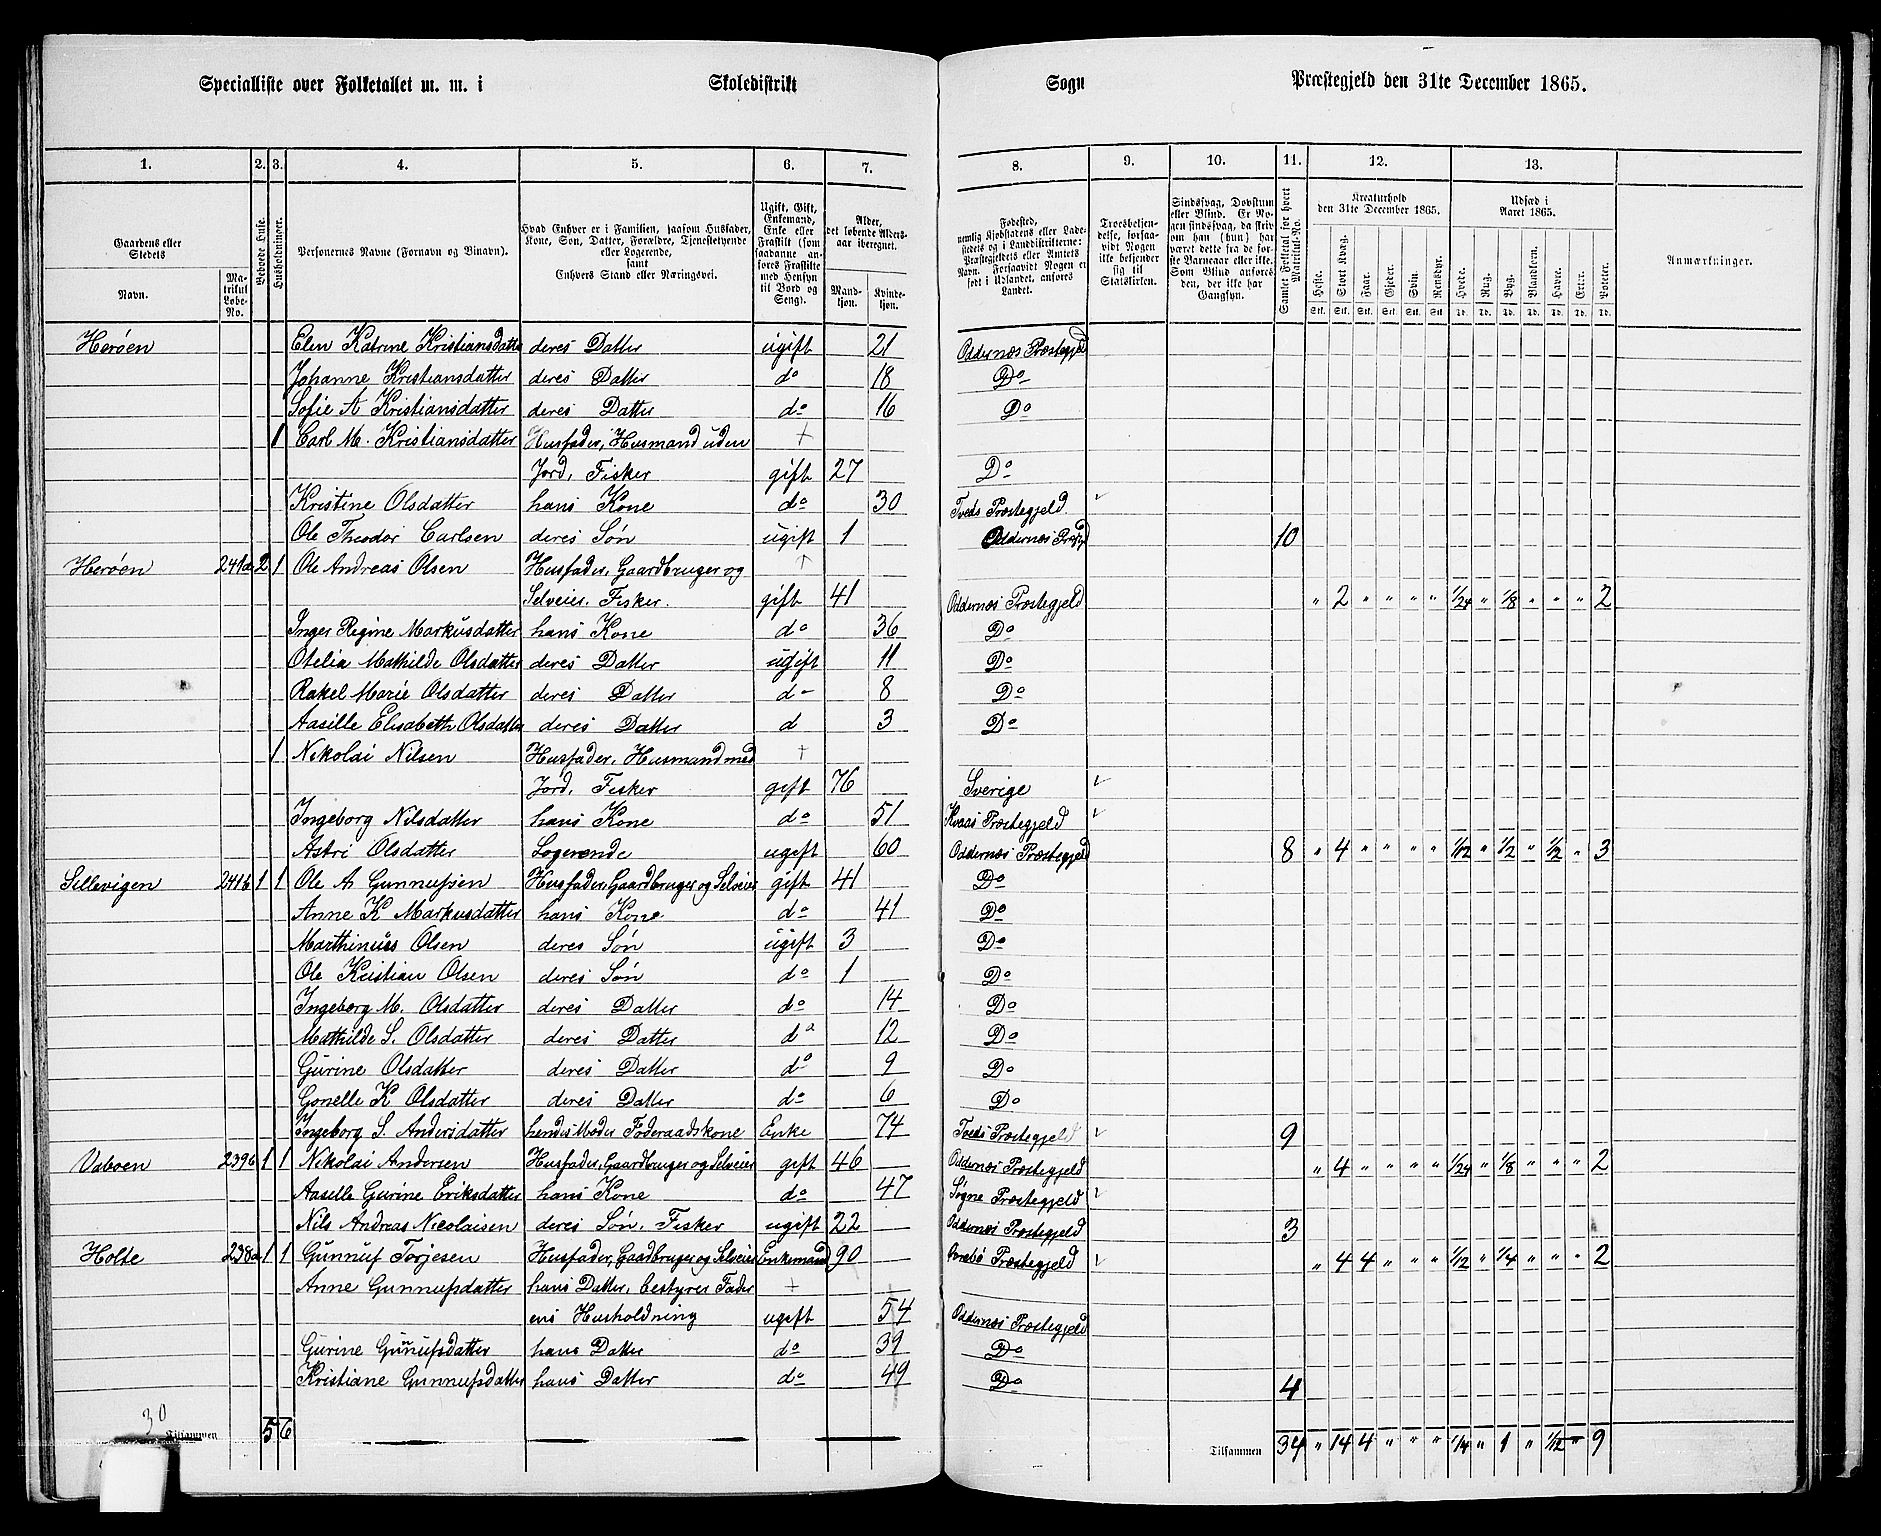 Specialliste over Folketallet m. m. i Skoledistrikt Sogn Præstegjeld den 31te December 1865.
1. 2. 3. 4. 5. 6. 7. 8. 9. 10. 11. 12. 13.
Gaardens eller Stedets
Navn.
Matrikul Løbe-No.
Beboede Huse.
Husholdninger.
Personernes Navne (Fornavn og Vinavn).
Hvad Enhver er i Familien, saasom Husfader, Kone, Søn, Datter, Forældre, Tjenestetyende eller Logerende, samt Enhvers Stand eller Næringsvei.
Ugift, Gift, Enkemand, Enke eller Fraskilt (som saadanne anføres Fraskilte med Hensyn til Bord og Seng).
Alder, det løbende Alders-aar iberegnet.
Mand-kjøn. Kvinde-kjøn.
Fødested, nemlig Kjøbstadens eller Ladestedets og i Landdistrikterne: Præstegjeldets eller Amtets Navn. Forsaavidt Nogen er født i Udlandet, anføres Landet.
Troesbekjendelse, forsaavidt Nogen ikke bekjender sig til Statskirken.
Sindssvag, Døvstum eller Blind. Er Nogen sindssvag, da skriv om han (hun) har været dette fra de første Barneaar eller ikke. Som Blind ansøres den, der ikke har Gangsyn.
Samlet Folketal for hvert Matrikul-No.
Kreaturhold den 31te December 1865.
Heste. Stort Kvæg. Faar. Gjeder. Svin. Rensdyr.
Udsæd i Aaret 1865.
Hvede. Rug. Byg. Blandkorn. Havre. Erter. Poteter.
Anmærkninger.
Herøen Elen Katrine Kristiansdatter deres Datter ugift 21 Oddernæs Præstegjeld
Johanne Kristiansdatter deres Datter do 18 Do
Sofie A Kristiansdatter deres Datter do 16 Do
1 Carl M. Kristiansdatter Husfader, Husmand uden +
Jord, Fisker gift 27 Do
Kristine Olsdatter hans Kone do 30 Tveds Præstegjeld
Ole Theodor Carlsen deres Søn ugift 1 Oddernæs Præstgj 10
Herøen 241a 2 1 Ole Andreas Olsen Husfader, Gaardbruger og +
Selveier, Fisker. gift 41 Oddernæs Præstegjeld " 2 " " " " 1/24 " 1/8 " " " 2
Inger Regine Markusdatter hans Kone do 36 Do
Otelia Mathilde Olsdatter deres Datter ugift 11 Do
Rakel Marie Olsdatter deres Datter do 8 Do
Aasille Elisabeth Olsdatter deres Datter d 3 Do
1 Nikolai Nilsen Husfader, Husmand med +
Jord, Fisker gift 76 Sverige
Ingeborg Nilsdatter hans Kone do 51 Præstegjeld
Astri Olsdatter Logerende ugift 60 Oddernæs Præstegjeld 8 " 4 " " " " 1/12 " 1/2 " 1/2 " 3
Sellevigen 241b 1 1 Ole A Gunnufsen Husfader, Gaardbruger og Selveier gift 41 Do
Anne K Markusdatter hans Kone do 41 Do
Marthinus Olsen deres Søn ugift 3 Do
Ole Kristian Olsen deres Søn do 1 Do
Ingeborg M. Olsdatter deres Datter do 14 Do
Mathilde S. Olsdatter deres Datter do 12 Do
Gurine Olsdatter deres Datter do 9 Do
Gonelle K Olsdatter deres Datter do 6 Do
Ingeborg S. Andersdatter hendes Moder Føderaadskone Enke 74 Tveds Præstegjeld 9
Vaboen 239b 1 1 Nikolai Andersen Husfader, Gaardbruger og Selveier gift 46 Oddernæs Præstegjeld " 4 " " " " 1/24 " 1/8 " " " 2
Aaselle Gurine Eriksdatter hans Kone do 47 Søgne Præstegjeld
Nils Andreas Nicolaisen deres Søn, Fisker ugift 22 Oddernæs Præstegjeld 3
Holte 238a 1 1 Gunnuf Torjesen Husfader, Gaardbruger og Selveier Enkemand 90 Præstegjeld " 4 4 " " " 1/12 " 1/4 " " " 2
Anne Gunnufsdatter hans Datter, bestyrer Fader +
ens Husholdning ugift 54 Oddernæs Præstegjeld
Gurine Gunnufsdatter hans Datter do 39 Do
Kristiane Gunnufsdatter hans Datter do 49 Do 4
30
Tilsammen 5 6 Tilsammen 34 " 14 4 " " " 1/4 " 1 " 1/12 " 9